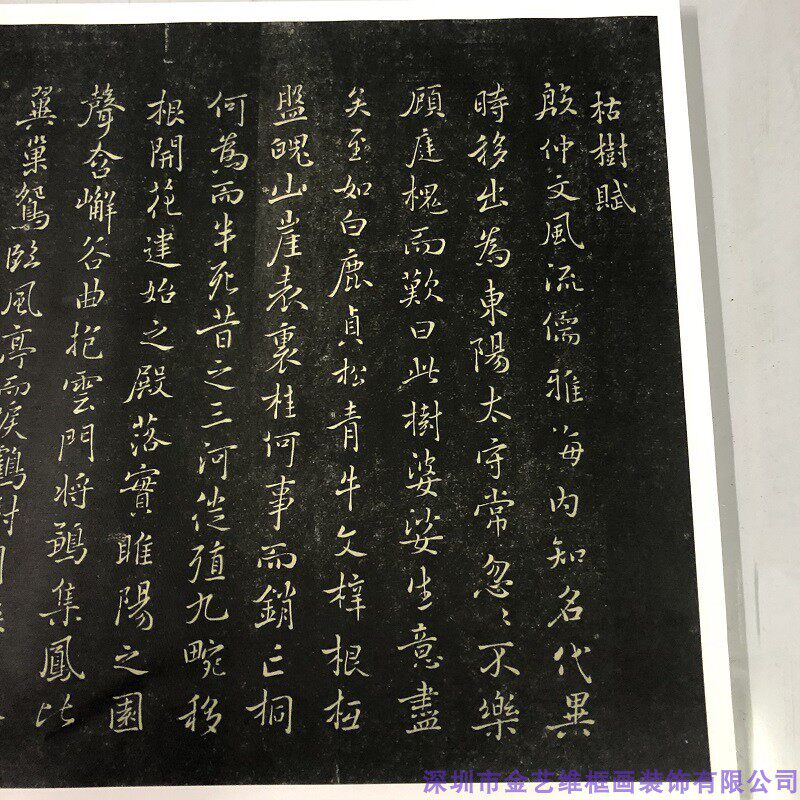 枯樹賦
殷仲文風流儒雅海内知名代異
時移出為東陽太守常忽〻不樂
顧庭槐而歎曰此樹婆娑生意盡
矣至如白鹿貞松青牛文梓根柢
盤魄山崖表裏桂何事而銷亡桐
何為而半死昔之三河徙殖九畹移
根開花建始之殿落實睢陽之園
聲含嶰谷曲抱雲門將鵷集鳳比
翼巢鴛臨風亭而唳鶴對月
深圳市金艺维框画装饰有限公司